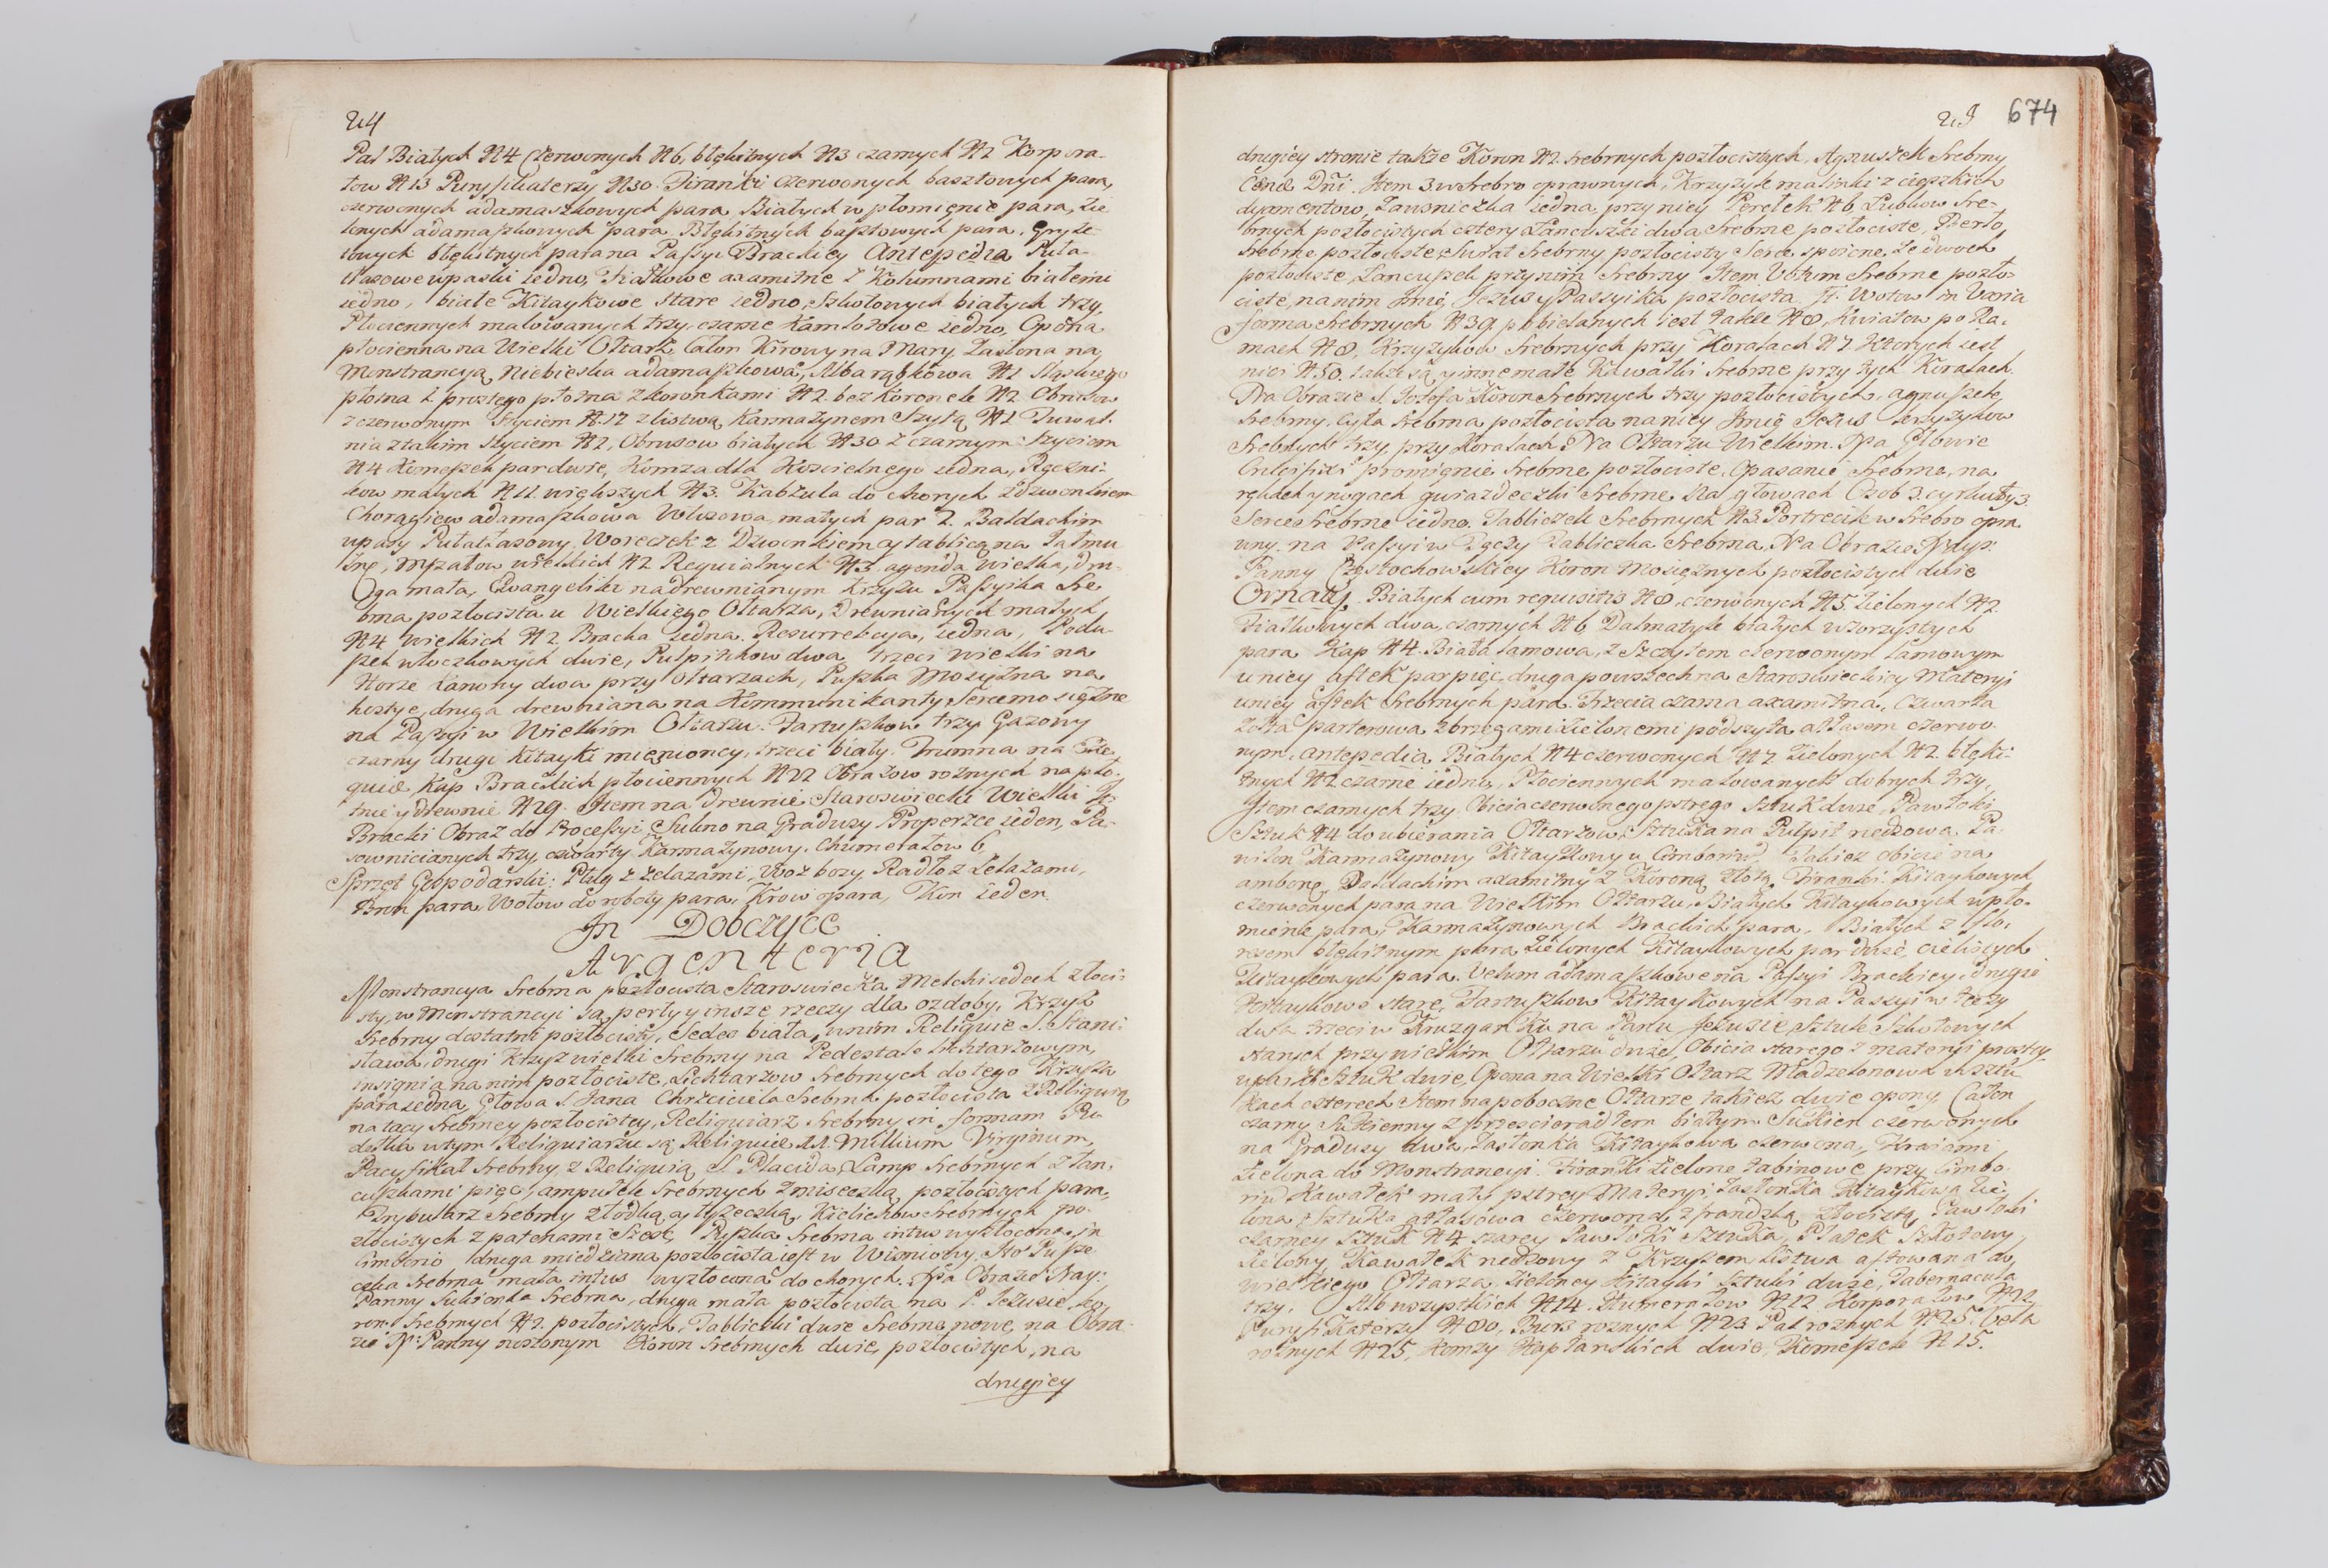 24
Pal Białych N4 Czerwonych N6, błękitnych N3 czarnych N2 Korpora-
łow N13 Puryfikaterzy N30. Firanki czerwonych basztowych para,
czerwonych adamaszkowych para Białych w płomięnie para, Zie
lonych adamaszkowych para Błękitnych basztowych para,
błękitnych para na Passyi Brackiey Antepedia
w paski iedno, Fiałkowe axamitne z Kolumnami białemi
iedno, białe Kitaykowe stare iedno, Szkotowych białych trzy,
Płociennych malowanych trzy, czarne kamlotowe iedno, Opona
płocienna na Wielki Ołtarz, Całon Kirowy na Mary, Zasłona na
Monstrancyą Niebieska adamaszkowa, Alba rąbkowa N1
płotna z prostego płotna z koronkami N2. bez koronek N2. Obrusow
z czerwonym szyciem N.17 z listwą Karmazynem szytą N1 Tuwal-
nia z takim szyciem N2, Obrusow białych N30 z czarnym szyciem
N4 Komeszek par dwie, Komza dla Koscielnego iedna, Ręczni-
kow małych N11. większych N3. Kabzula do chorych z dzwonkiem
Chorągiew adamaszkowa małych par 2. Baldachim
w pasy Woreczek z Dzwonkiem y tablicą na
Mszałow wielkich N2 Requialnych N3 agenda wielka, dru-
ga mała, Ewangeliki na drewnianym krzyżu Passyika Sre
brna pozłocista u Wielkiego Ołtarza, Drewnianych małych
N4 wielkich N2 Bracka iedna. Resurrekcya, iedna, Podu-
szek włoczkowych dwie, Pulpitkow dwa trzeci wielki na
Horze kanony dwa przy Ołtarzach, Puszka Mosiężna na
hostye, druga drewniana na Kommunikanty Serce mosiężne
na Passyi w Wielkim Ołtarzu. Fartuszkow trzy Gazowy
czarny drugi kitayki mienioncy, trzeci biały. Trumna na Exe
quie Kap Brackich płociennych N22 Obrazow roznych na pło-
tnie y drewnie N29. Item na drewnie Staroswiecki Wielki
Bracki Obraz do Processyi Sukno na Gradusy Proporzce ieden, Pa-
sow nicianych trzy, czwarty Karmazynowy. Chumerałow 6,
Sprzęt Gospodarski: Pług z żelazami, Woz bosy Radło z Żelazami,
Bron para, Wołow do roboty para, Krow para, Kon ieden.
In Dobczyce
Argenteria
Monstrancya Srebrna pozłocista Staroswiecka Melchisedech złoci-
sty, w Monstrancyi są perły y insze rzeczy dla ozdoby, Krzyż
Srebrny dostatni pozłocisty, Sedes biała, w nim Religuie S. Stani-
sława, drugi Krzyż wielki Srebrny na Pedestale lichtarzowym,
insignia na nim pozłociste, Lichtarzow Srebrnych do tego Krzyża
para iedna, Głowa S. Jana Chrzciciela Srebrna pozłocista z Religuią
na tacy Srebrney pozłocistey, Religuiarz Srebrny in formam Pu
dełka w tym Religuiarzu są Religuie SS. Millium Virginum,
Pacyfikał Srebrny, z Religuią S. Placida, Lamp Srebrnych z łan-
cuszkami pięc, ampułek Srebrnych z miseczką pozłocistych para,
Trybularz Srebrny z łodką, y łyżeczką, Kielichow Srebrnych po-
złocistych z patenami Szesc, Puszka Srebrna intus wyzłocona, in
Cimborio druga miedziana pozłocista iest w Wisniowy. Ato Pusze
czka Srebrna mała intus wyzłocona do chorych. Na Obrazie Nay:
Panny Sukionka Srebrna, druga mała pozłocista na P. Jezusie, ko-
ron Srebrnych N2. pozłocistych, Tabliczki dwie Srebrne nowe, na Obra-
zie N. Panny noszonym Koron Srebrnych dwie, pozłocistych, na
drugiey
25 674
drugiey stronie także Koron N2. Srebrnych pozłocistych, Agnuszek Srebrny
Cenæ Dñi. Item 3 w srebro oprawnych, Krzyżyk malinki z ciężkich
dyamentow, Zausniczka iedna, przy niey Perełek N6, Kubkow Sre-
brnych pozłocistych cztery Łancuszki dwa Srebrne pozłociste, Berło
Srebrne pozłociste, Sygnat Srebrny pozłocisty Serce spoione, ze dwoch
pozłociste, Lancuszek przy nim Srebrny Item Votum Srebrne pozło-
ciste, na nim Imię Jezus y Passyika pozłocista It. Wotow in Varia
forma Srebrnych N39 pobielanych iest także N8, Kwiatow po Ra-
mach N8, Krzyżykow Srebrnych przy Koralach N7. Ktorych iest
nici N50. także są y inne małe Kawałki Srebrne przy tych Koralach.
Na Obrazie S. Jozefa Koron Srebrnych trzy pozłocistych, agnuszek
Srebrny, Cyfra Srebrna pozłocista na niey Imię Jezus krzyżykow
Srebrnych trzy, przy Koralach. Na Ołtarzu Wielkim. Na Głowie
Crucifixi promięnie Srebrne pozłociste, Opasanie Srebrne, na
rękach y nogach gwiazdeczki Srebrne Na głowach Osob 3. cyrkuły 3
Serce Srebrne iedno. Tabliczek Srebrnych N3. Portrecik w Srebro opra
wny. na Passyi w Tęczy Tabliczka Srebrna, Na Obrazie Nayś:
Panny Częstochowskiey Koron Mosiężnych pozłocistych dwie
Ornaty. Białych cum requisitis N8, czerwonych N5, Zielonych N2.
Fiałkowych dwa, czarnych N6 Dalmatyk białych wzorzystych
para Kap N4. Biała lamowa, z Szczytem czerwonym lamowym
u niey aftek par pięc, druga powszechna Staroswieckiey Materyi
u niey aftek Srebrnych para. Trzecia czarna axamitna, Czwarta
Zołta parterowa z brzegami zielonemi podszyta atłasem czerwo-
nym. Antepedia, Białych N4 czerwonych N7 Zielonych N2. błęki-
tnych N2 czarne iedno, Płociennych malowanych dobrych trzy,
Item czarnych trzy. Obicia czerwonego pstrego Sztuk dwie, Pawłoki
Sztuk N4 do ubierania Ołtarzow, Sztuka na Pulpit nedzowa. Pa-
wilon Karmazynowy Kitaykowy u Cimborium. Takież obicie na
ambonę, Baldachim axamitny z Koroną złotą, Firanki Kitaykowych
czerwonych para na Wielkim Ołtarzu, Białych Kitaykowych w pło-
mienie para, Karmazynowych Brackich para. Białych z
błękitnym para, Zielonych Kitaykowych par dwie, cielistych
Kitaykowych para. Velum adamaszkowe na Passyi Brackiey, drugie
Kitaykowe stare, Fartuszkow Kitaykowych na Passyi w tęczy
dwa trzeci w Kruzganku na Panu Jezusie, Sztuk Szkotowych
starych przy wielkim Ołtarzu dwie, Obicia starego z materyi prostey
w paski Sztuk dwie, Opona na Wielki Ołtarz w sztu
kach czterech Item na poboczne Ołtarze takież dwie opony, Całon
czarny Sukienny z przescieradłem białym Sukien czerwonych
na Gradusy dwa, Zasłonka Kitaykowa czerwona,
Zielona do Monstrancyi. Firanki Zielone tabinowe przy Cimbo-
rium Kawałek mały pstrey Materyi, Zasłonka Kitaykowa Zie-
lona, Sztuka atłasowa czerwona, z frandzlą złocistą, Pawłoki
czarney Sztuk N4 szarey Pawłoki Sztuka, Płatek Szkotowy
Zielony, Kawałek nedzowy z Krzyżem listwa aftowana do
Wielkiego Ołtarza. Zieloney Kitayki Sztuki dwie, Tabernacula
trzy. Alb wszystkich N14. Humerałow N12. Korporałow N22
Puryfikaterzy N80, Burs roznych N23 Pal roznych N25. Vela
roznych N25, Komzy Kapłanskich dwie, Komeszek N15.